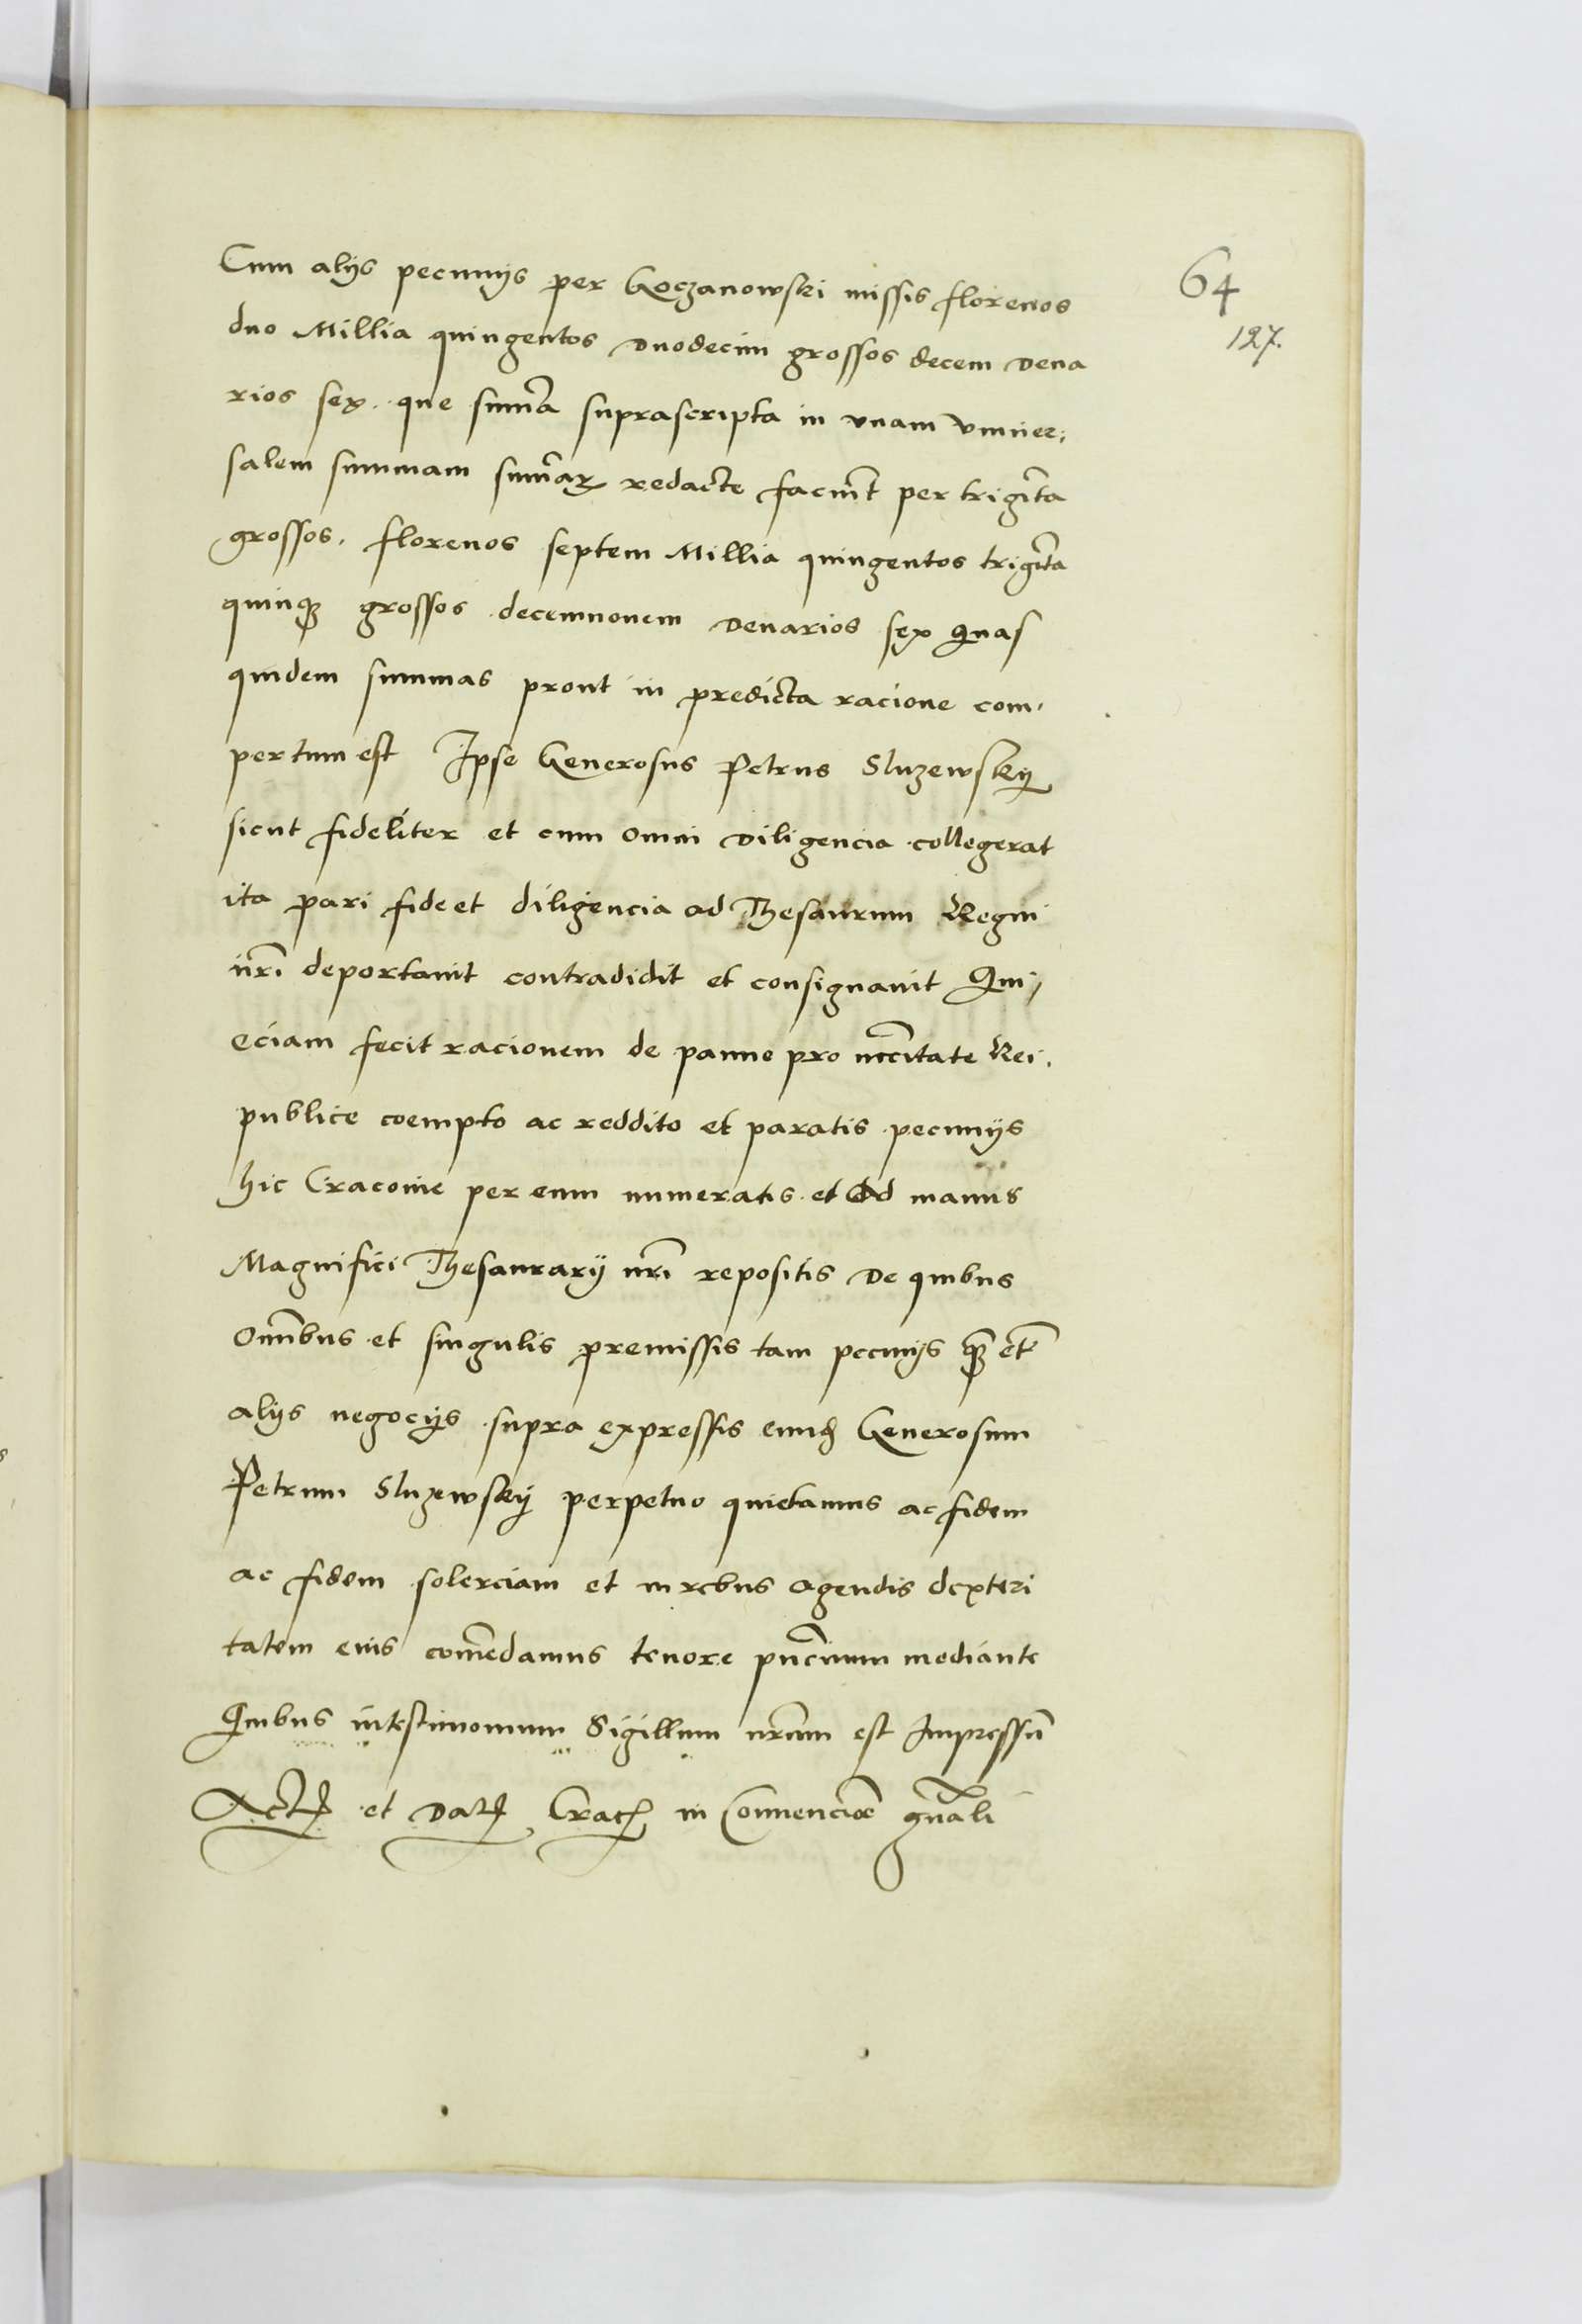 Cum alijs pecunijs per Koczanowski missis florenos
64
duo Millia quingentos duodecim grossos decem dena
127.
rios sex. que suma͂ suprascripta in vnam vniuer¡
salem summam sum͂aꝝ redacte faciu͂t per trigi͂ta
grossos. florenos septem Millia quingentos trigi͂ta
quinqꝫ grossos decemnouem denarios sex Quas
quidem summas prout in predicta racione com,
pertum est Ipse Generosus Petrus Sluzewskij
sicut fideliter et cum omni diligencia collegerat
ita pari fide et diligencia ad Thesaurum Regni
nr͂i deportauit contradidit et consignauit Qui/
eciam fecit racionem de panno pro necc͂itate Rei.
publice coempto ac reddito et paratis pecunijs
hic Cracouie per eum numeratis et Ad manus
Magnifici Thesaurarij nr͂i repositis De quibus
Om͂ibus et singulis premissis tam pecunijs qꝫ͂ et͂
alijs negocijs supra expressis eundꝫ Generosum
Petrum Sluzewskij perpetuo quietamus ac fidem
ac fidem solerciam et in rebus agendis dexteri
tatem eius com͂edamus tenore pn͂cium mediante
Quibus in testimonium Sigillum nr͂um est Impressu͂
Actꝫ et Datꝫ Cracꝫ in Conuencio͂e gn͂ali